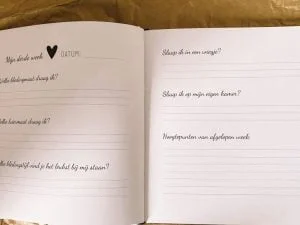 Mijn derde week DATUM:
Welke kledingmaat draag ik?
Welke luiermaat draag ik?
Welke kledingstijl vind je het leukst bij mij staan?
Slaap ik in een wiegje?
Slaap ik op mijn eigen kamer?
Hoogtepunten van afgelopen week: